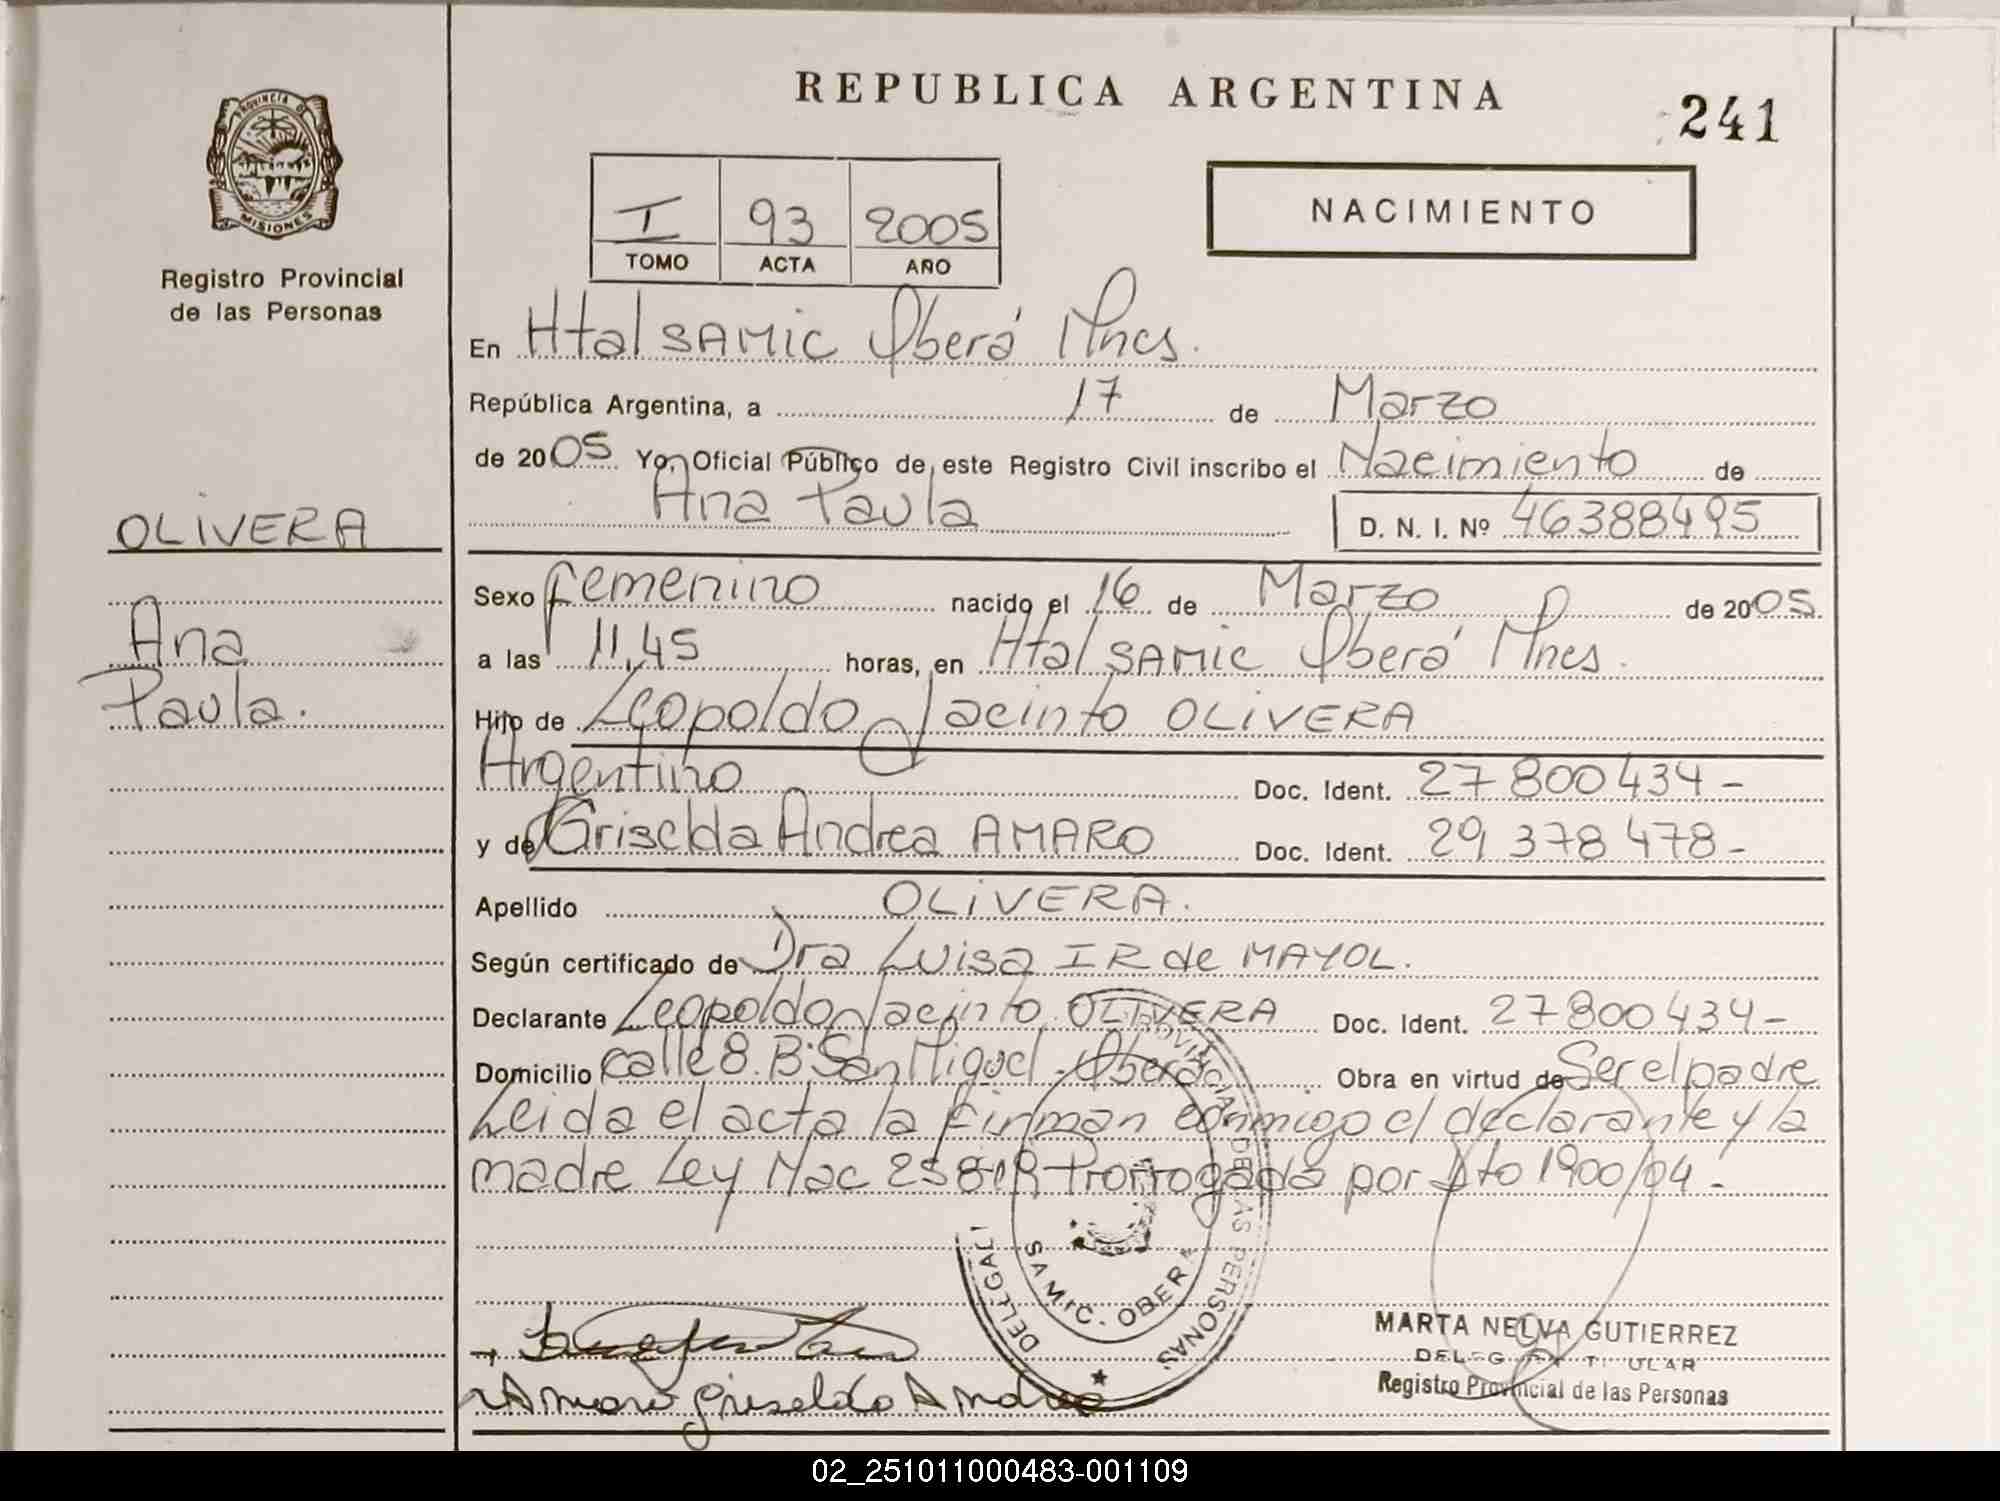 REPUBLICA ARGENTINA
241
PROVINCIA DE
MISIONES
Registro Provincial
de las Personas
I 93 2005
TOMO ACTA AÑO
NACIMIENTO
En Htal SAMIC Oberá Mnes.
República Argentina, a 17 de Marzo
de 2005 Yo, Oficial Público de este Registro Civil inscribo el Nacimiento de
Ana Paula
D. N. I. Nº 46388495
OLIVERA
Ana
Paula.
Sexo Femenino nacido el 16 de Marzo de 2005.
a las 11,45 horas, en Htal SAMIC Oberá Mnes.
Hijo de Leopoldo Jacinto OLIVERA
Argentino Doc. Ident. 27 800 434-
y de Griselda Andrea AMARO Doc. Ident. 29 378 478-
Apellido OLIVERA.
Según certificado de Dra Luisa IR de MAYOL.
Declarante Leopoldo Jacinto OLIVERA Doc. Ident. 27800434-
Domicilio calle 8. Bº San Miguel - Oberá Obra en virtud de Ser el padre
Leida el acta la firman conmigo el declarante y la
madre Ley Nac 25819 Prorrogada por Dto 1900/04.-
PROVINCIAL DE LAS PERSONAS
SAMIC. OBERA
Amaro Griselda Andrea
MARTA NELVA GUTIERREZ
DELEGADA TITULAR
Registro Provincial de las Personas
02_251011000483-001109